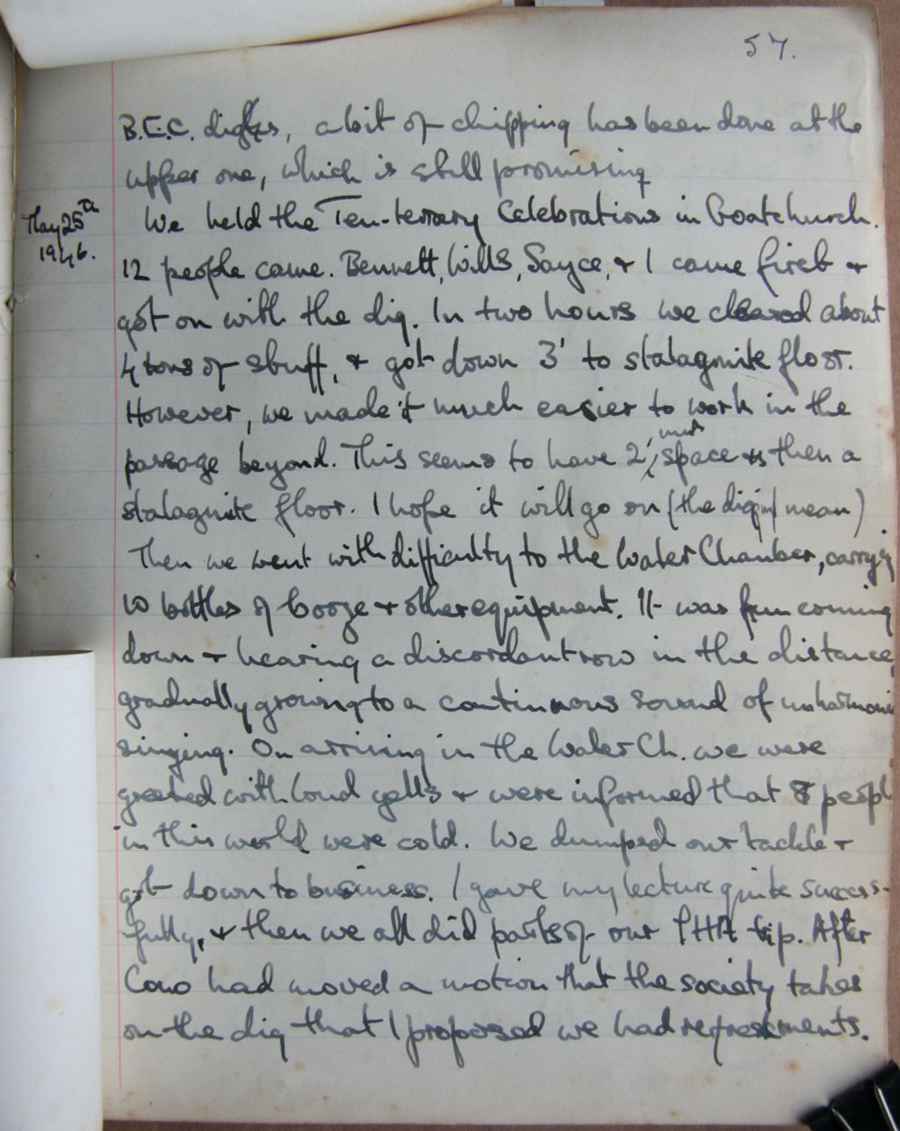 57.
B.E.C. digs, a bit of chipping has been done at the
upper one, which is still promising
May 25th
1946.
We held the Ten-ternary Celebrations in Goatchurch.
12 people came. Bennett, Wills, Sayce, & I came first &
got on with the dig. In two hours we cleared about
4 tons of stuff, & got down 3' to stalagmite floor.
However, we made it much easier to work in the
passage beyond. This seems to have 2' mud space & then a
stalagmite floor. I hope it will go on (the dig, I mean)
Then we went with difficulty to the Water Chamber, carryig
10 bottles of booze & other equipment. It was fun coming
down & hearing a discordant row in the distance,
gradually growing to a continuous sound of unharmonic
singing. On arriving in the Water Ch. we were
greeted with loud yells & were informed that 8 peopl
in this world were cold. We dumped our tackle &
got down to business. I gave my lecture quite success-
fully, & then we all did parts of our trip. After
Cono had moved a motion that the society takes
on the dig that I proposed we had refreshments.